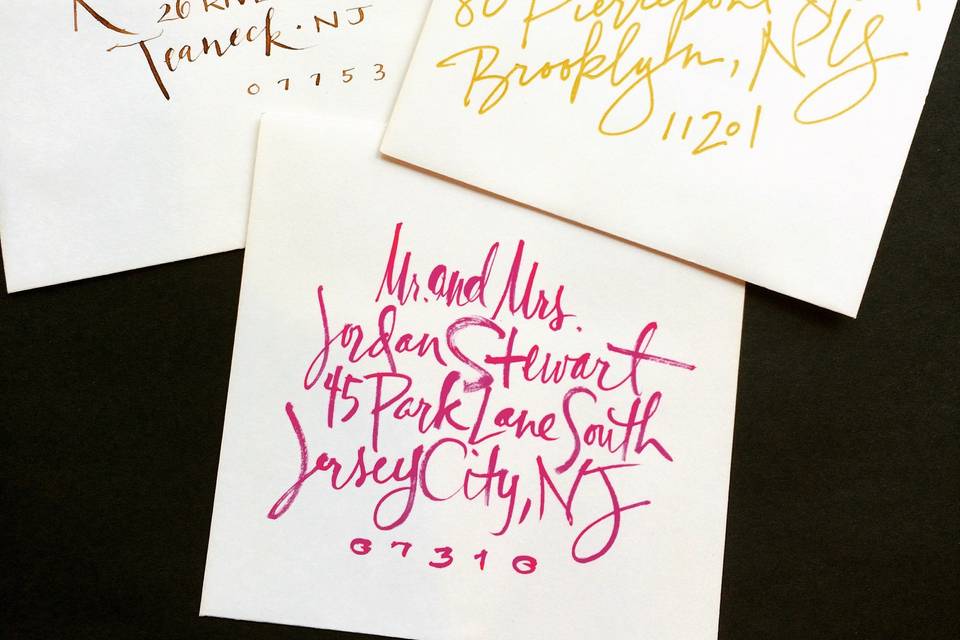 26
Teaneck · NJ
07753
80 Pierrepont
Brooklyn, NY
11201
Mr. and Mrs.
Jordan Stewart
45 Park Lane South
Jersey City, NJ
07310